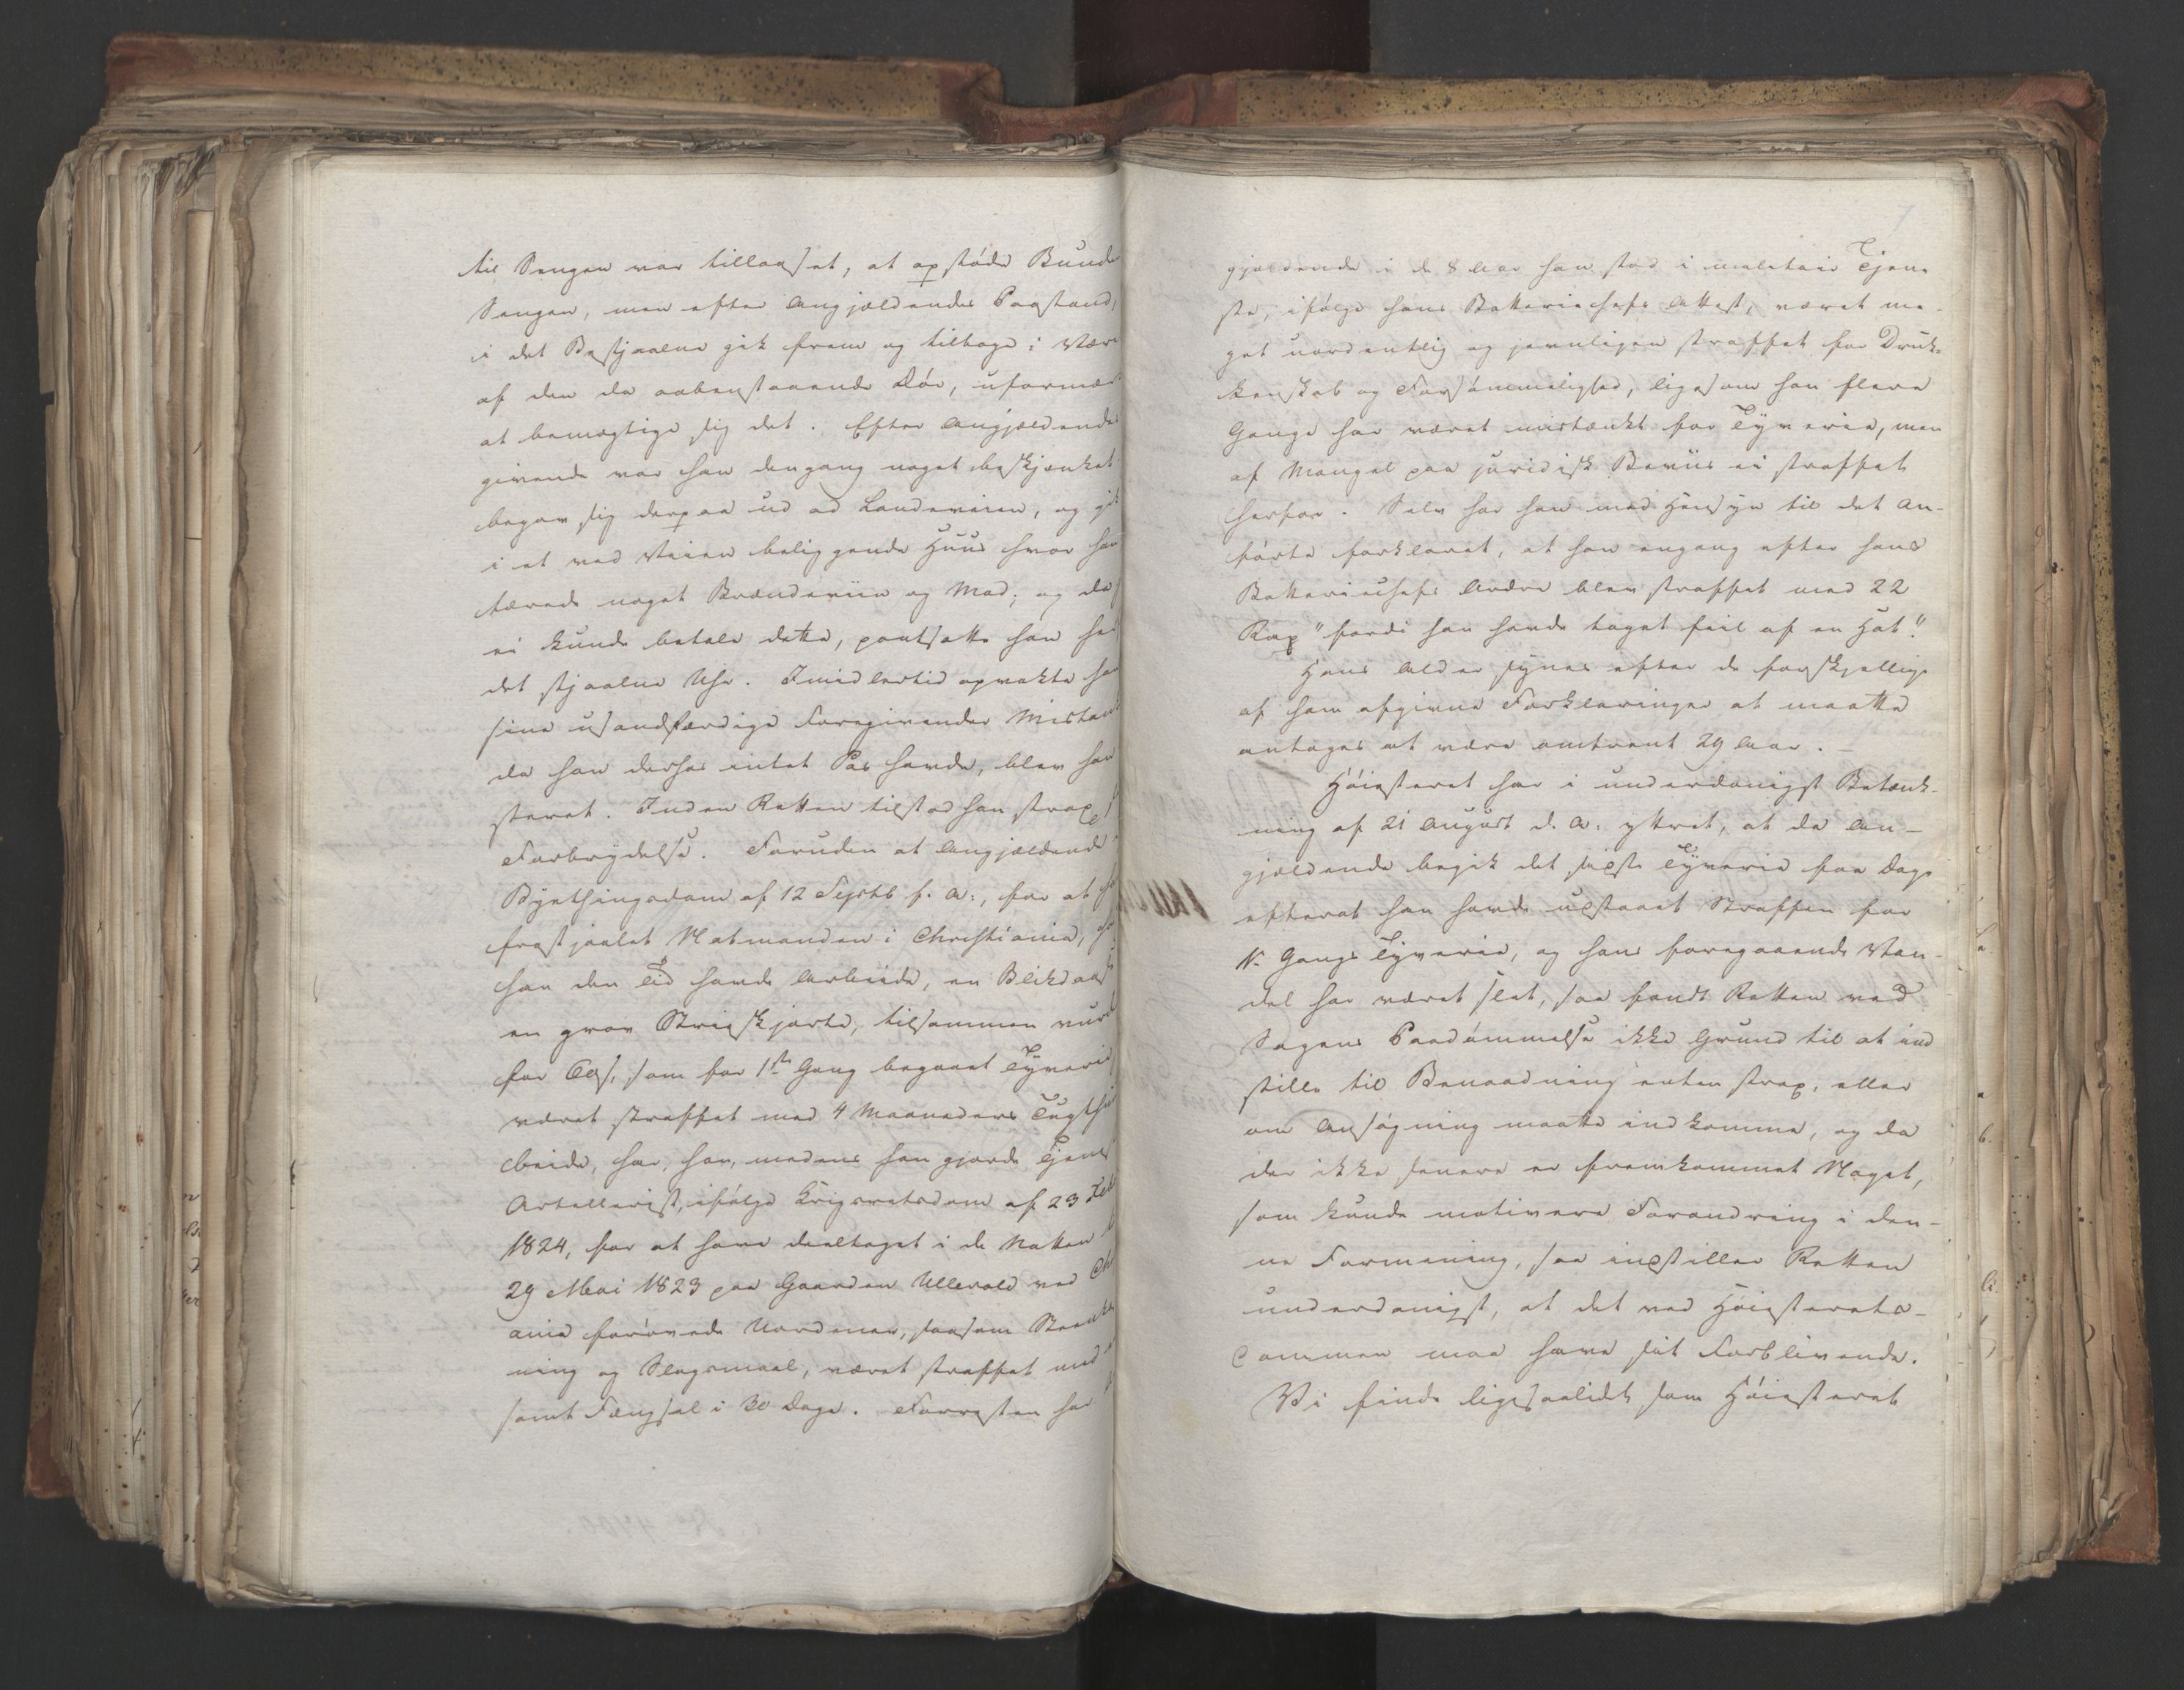 til Sengen var tillaaset, at opstøde Bunde
Sengen, men efter Angjældendes Paastand,
i det Bestjaalne gik frem og tilbage i Være
af den da aabenstaaende Dør, uformær
at bemægtige sig det. Efter Angjældende
givende var han dengang noget beskjænket
begav sig derpaa ud ad Landeveien, og gik
i et ved Veien beliggende Huus hvor han
tærede noget Brændeviin og Mad; og da
ei kunde betale dette, pantsatte han
det stjaalne Uhr. Imidlertid opvakte han
sine usandfærdige Foregivender Mistank
da han derhos intet Pas havde, blev han
steret. Inden Retten tilstod han strax
Forbrydelse. Foruden at Angjældende
Byethingsdom af 12 Septb f. A:, for at
frastjaalet Natmanden i Christiania,
han den Tid havde Arbeide, en Blikdaase
en grov Strieskjorte, tilsammen vurd
for som for 1ste Gang begaaet Tyverie
været straffet med 4 Maaneders Tugth
beide, har han, medens han gjorde Tjenes
Artellerist, ifølge Krigsretsdom af 23 Feb
1824, for at have deeltaget i de Natten
29 Mai 1823 paa Gaarden Ullevold ved Ch
ania forøvede Uordener, saasom Steenka
ning og Slagsmaal, været straffet med
samt Fængsel i 30 Dage. Forresten har
7
gjældende i de 8 Aar han stod i militair Tjene
ste, ifølge hans Batteriechefs Attest, været me-
get uordentlig og jevnligen straffet for Druk-
kenskab og Forsømmelighed, ligesom han flere
Gange har været mistænkt for Tyverie, men
af Mangel paa juridisk Beviis ei straffet
herfor. Selv har han med Hensyn til det an-
førte forklaret, at han engang efter hans
Batteriechefs Ordre blev straffet med 22
Rap "fordi han havde taget feil af en Hat".
Hans Alder synes efter de forskjellige
af ham afgivne Forklaringer at maatte
antages at være omtrent 29 Aar. -
Høiesteret har i underdanigst Betænk-
ning af 21 August d. A: yttret, at da An-
gjældende begik det sidste Tyverie faa Dage
efterat han havde udstaaet Straffen for
1ste Gangs Tyverie, og hans foregaaende Van-
del har været slet, saa fandt Retten ved
Sagens Paadømmelse ikke Grund til at ind
stille til Benaadning enten strax, eller
om Ansøgning maatte indkomme, og da
der ikke senere er fremkommet Noget,
som kunde motivere Forandring i den-
ne Formening, saa indstiller Retten
underdanigst, at det ved Høiesterets-
Dommen maa have sit Forblivende.
Vi finde ligesaalidt som Høiesteret